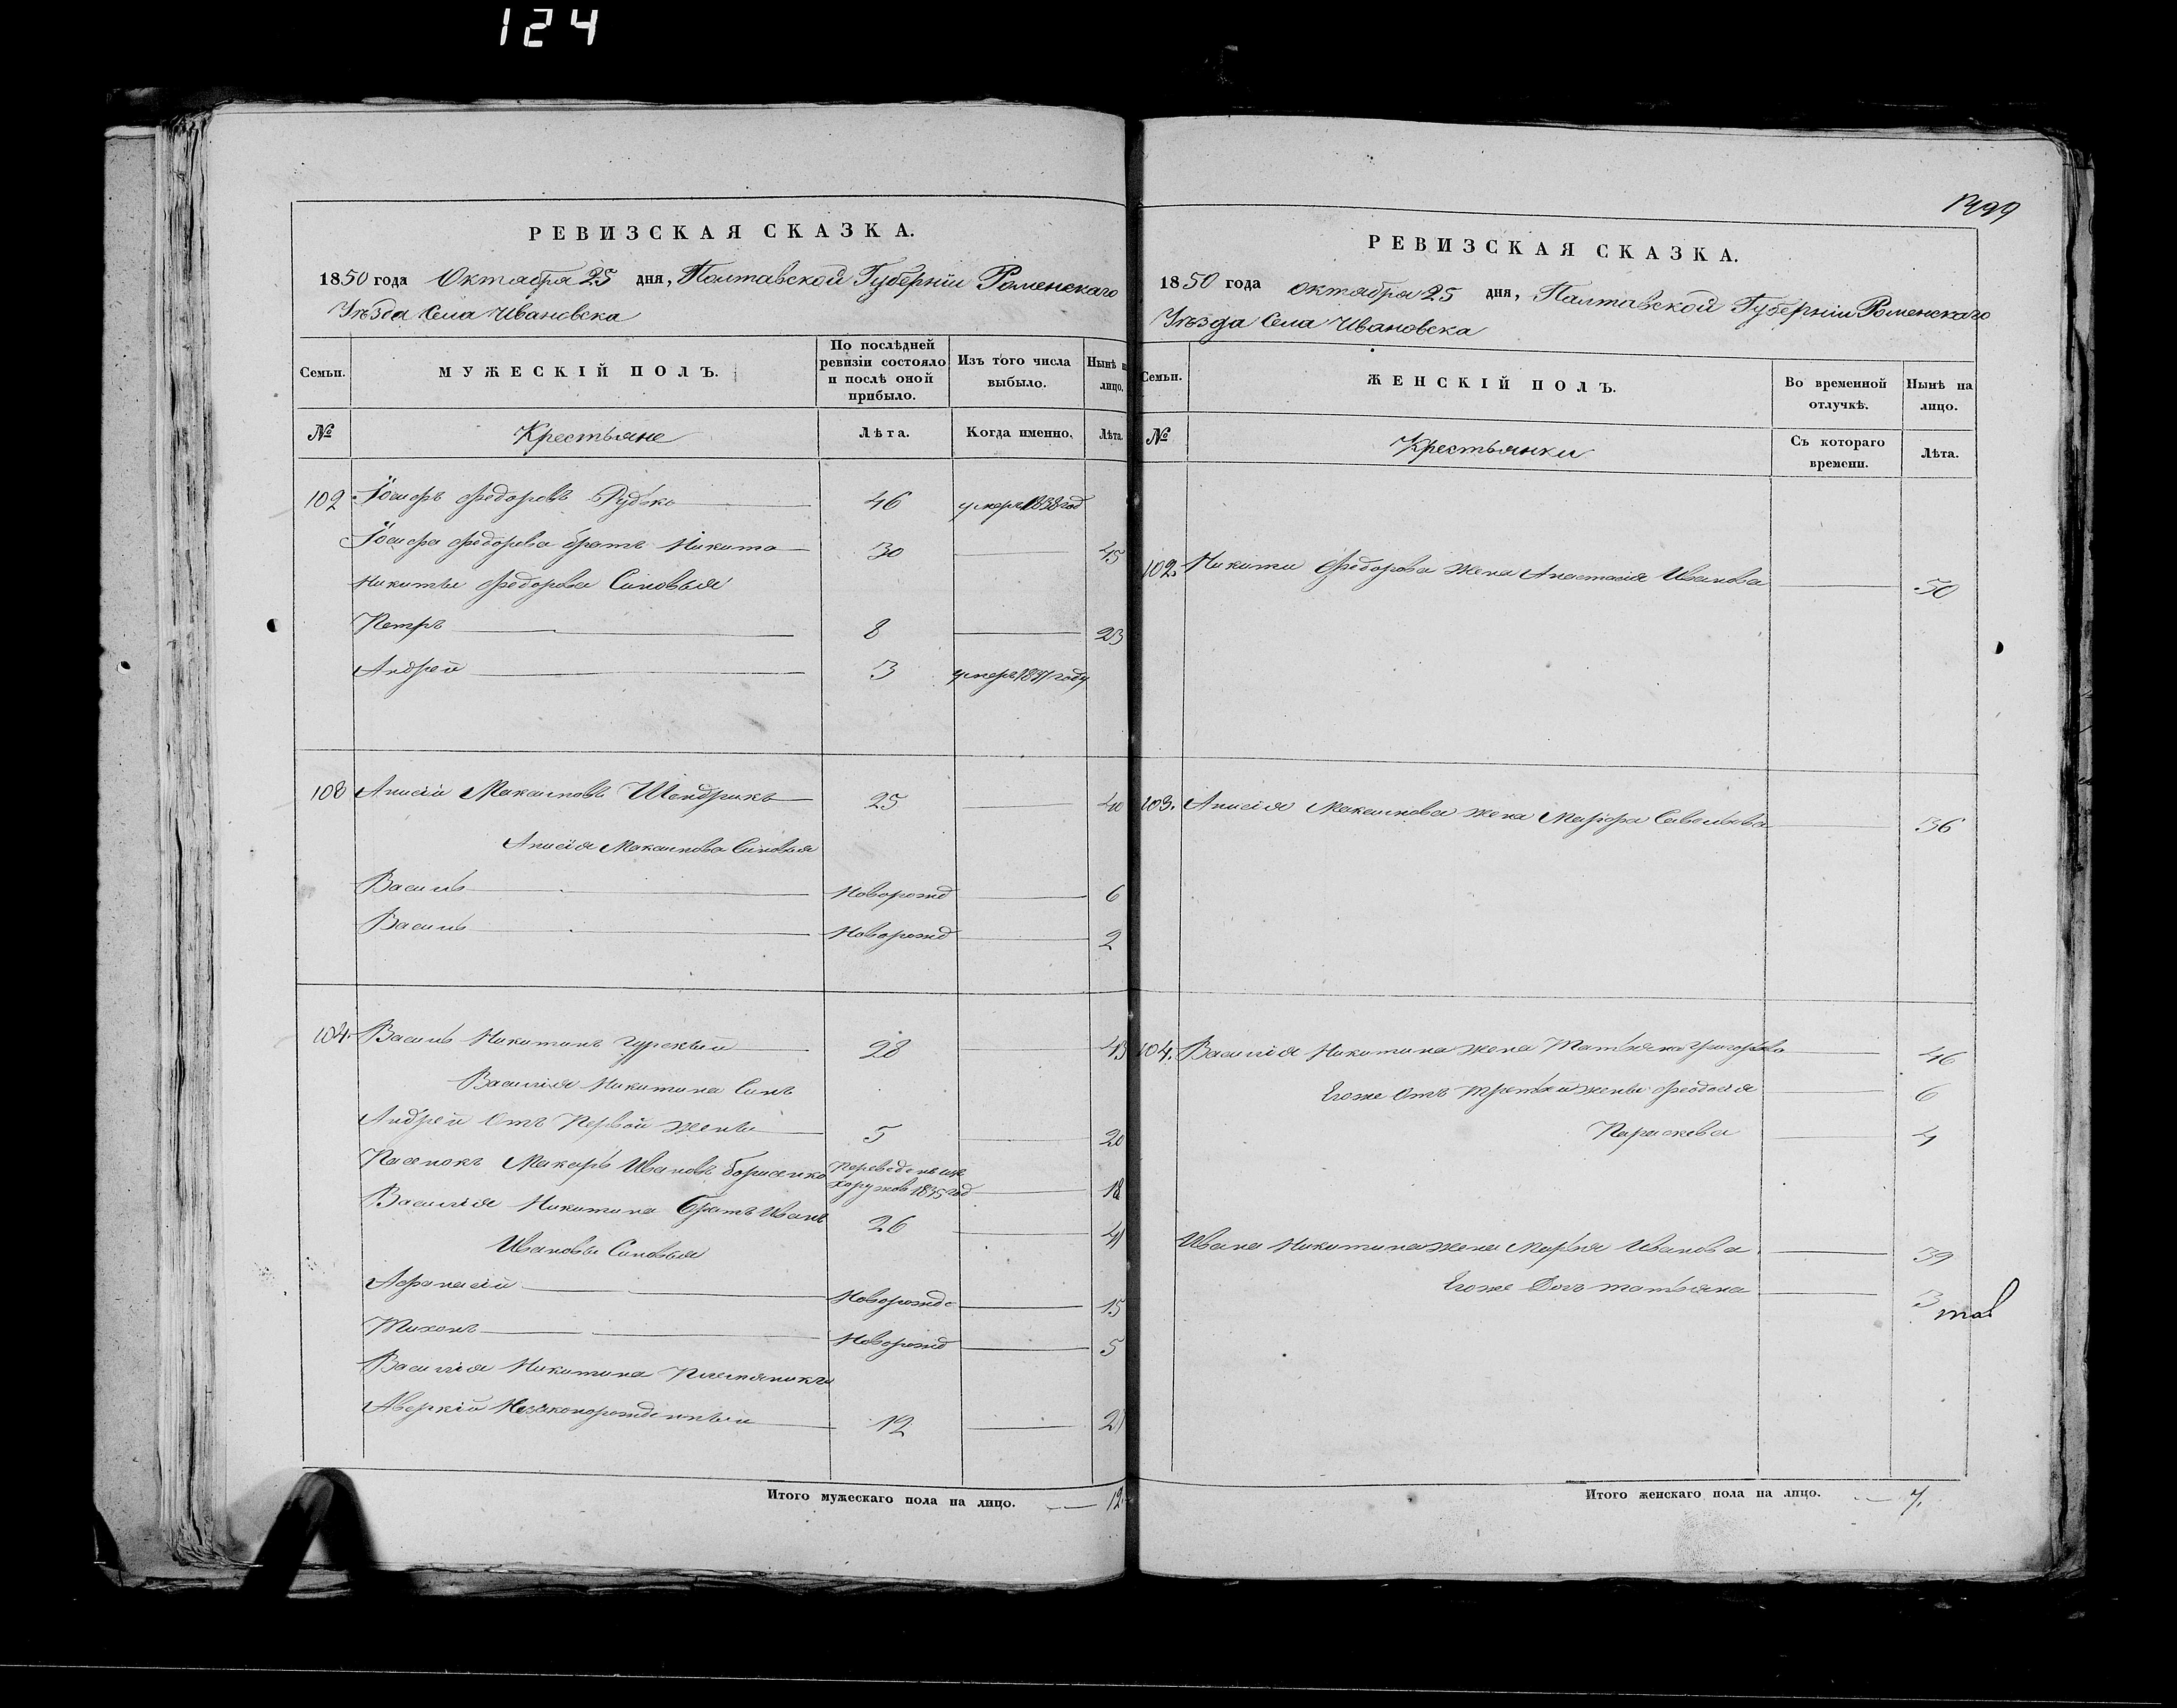 124
РЕВИЗСКАЯ СКАЗКА.
1850 года Октября 25 дня, Полтавской Губернiи Роменскаго
Уѣзда Села Ивановска
Семьи.
МУЖЕСКIЙ ПОЛЪ.
По послѣдней
ревизiи состояло
и послѣ оной
прибыло.
Изъ того числа
выбыло.
Нынѣ н
лицо.
№
Крестьяне
Лѣта.
Когда именно.
Лѣта
102 Iосифъ Федоровъ Рудько 46 умеръ 1838 год
Iосифа Федорова братъ Никита 30 45
Никиты Федорова Сыновья
Петръ 8 23
Андрей 3 умеръ году
103 Анисiй Максимовъ Шендрикъ 25 40
Анисiя Максимова Сыновья
Василь Новорожд 6
Василь Новорожд 2
104. Василь Никитинъ 28 43
Василiя Никитина Сынъ
Андрей Отъ Первой жены 5 20
Пасенокъ Макаръ Ивановъ Борисенко Переведенъ 1835 год 18
Василiя Никитина братъ Иванъ 26 41
Ивановы Сыновья
Афанасiй Новорожде 15
Тихонъ Новорожд 5
Василiя Никитина Племяникъ
Аверкiй Незаконорожденный 12 27
Итого мужескаго пола на лицо. 12.
1399
РЕВИЗСКАЯ СКАЗКА.
1850 года октября 25 дня, Палтавской Губернiи Роменскаго
Уѣзда Села Ивановска
Семьи.
ЖЕНСКIЙ ПОЛЪ.
Во временной
отлучкѣ.
Нынѣ на
лицо.
№
Крестьянки
Съ котораго
времени.
Лѣта.
102. Никиты Федорова жена Анастасiя Иванова 50
103. Анисiя Максимова жена Марфа Савельева 36
104. Василiя Никитина жена Татьяна Григорьева 46
Егоже Отъ Третьи жены Феодосiя 6
Параскева 4
Ивана Никитина жена Марья Иванова 39
Егоже Дочь Татьяна 3
Итого женскаго пола на лицо. 7.